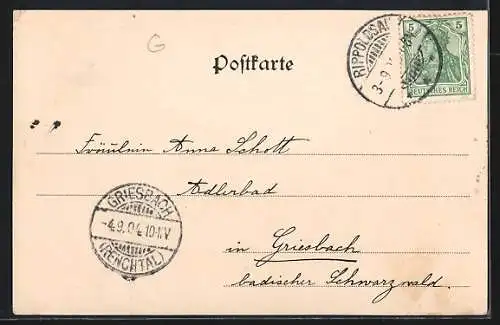 G
Postkarte
RIPPOLDSAU
3-9
5 5
DEUTSCHES REICH
Fräulein Anna Schott
Adlerbad
GRIESBACH
-4.9.04.10-11V
(RENCHTAL)
in Griesbach
badischer Schwarzwald.